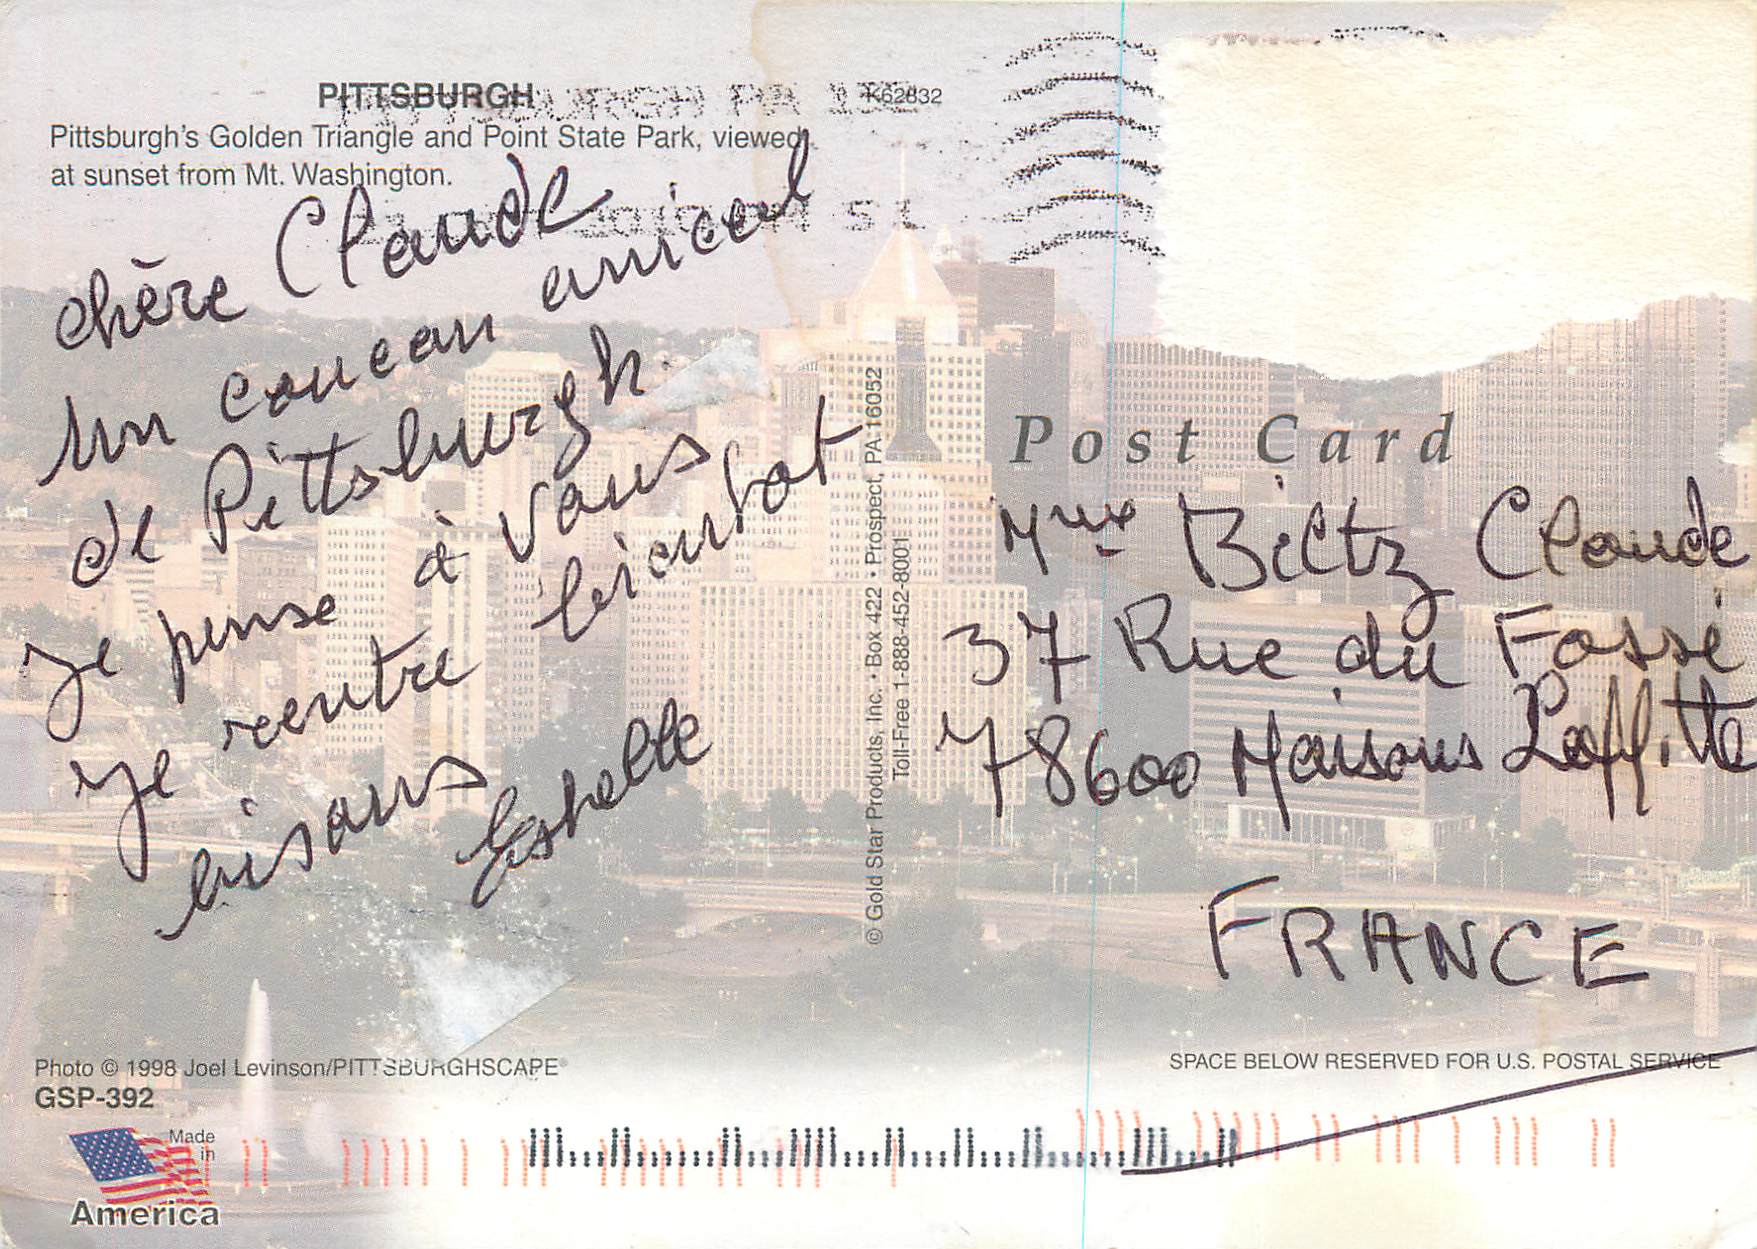 PITTSBURGH
K62832
Pittsburgh's Golden Triangle and Point State Park, viewed
at sunset from Mt. Washington.
PITTSBURGH PA 15
chère Claude
Un coucou amical
de Pittsburgh.
je pense à vous
je rentre bientot
bisous
Eshelle
© Gold Star Products, Inc. • Box 422 • Prospect, PA 16052
Toll-Free 1-888-452-8001
Post Card
Mme Biltz Claude
37 Rue du Fossé
78600 Maisons Laffitte
FRANCE
Photo © 1998 Joel Levinson/PITTSBURGHSCAPE®
GSP-392
SPACE BELOW RESERVED FOR U.S. POSTAL SERVICE
Made
in
America